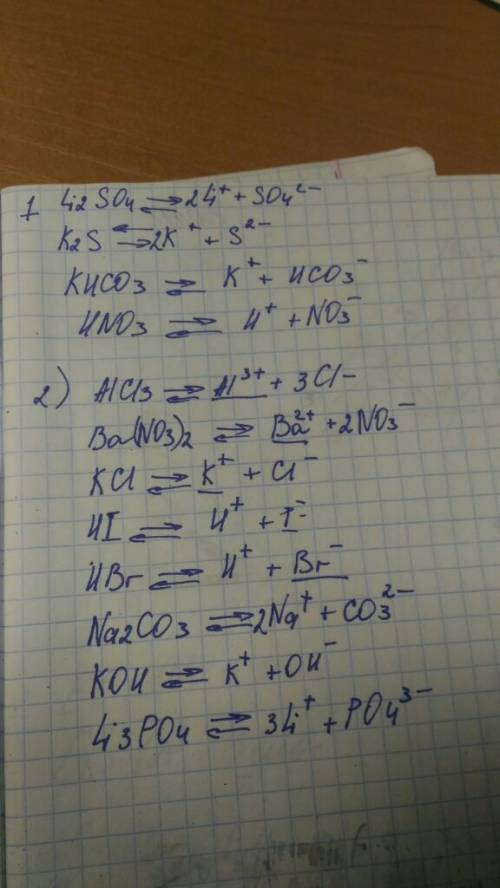 1 Li2SO4 ⇌ 2Li⁺ + SO4²⁻
K2S ⇌ 2K⁺ + S²⁻
KHCO3 ⇌ K⁺ + HCO3⁻
HNO3 ⇌ H⁺ + NO3⁻
2) AlCl3 ⇌ Al³⁺ + 3Cl⁻
Ba(NO3)2 ⇌ Ba²⁺ + 2NO3⁻
KCl ⇌ K⁺ + Cl⁻
HI ⇌ H⁺ + I⁻
HBr ⇌ H⁺ + Br⁻
Na2CO3 ⇌ 2Na⁺ + CO3²⁻
KOH ⇌ K⁺ + OH⁻
Li3PO4 ⇌ 3Li⁺ + PO4³⁻